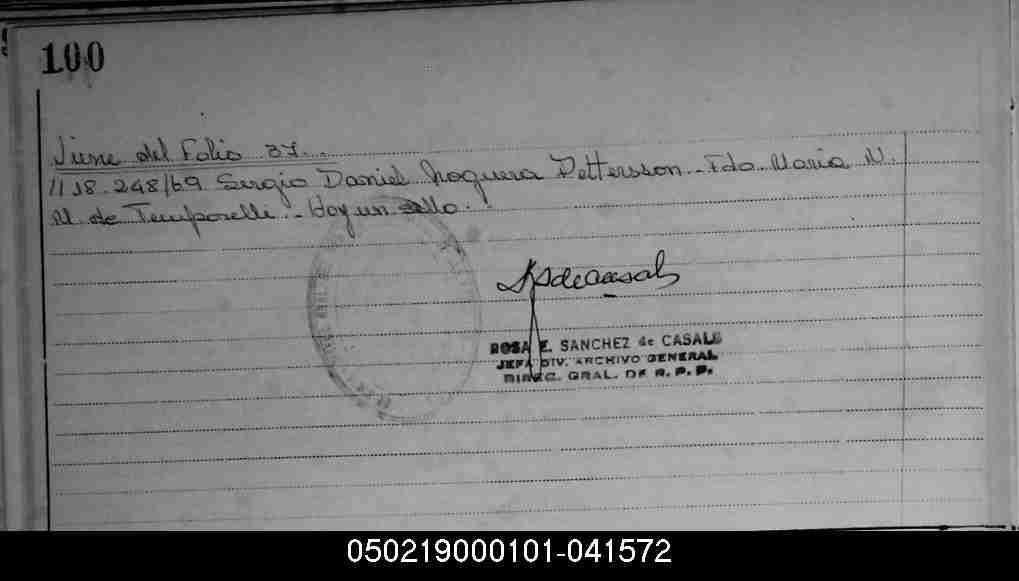 100
Viene del Folio 37.-
1118.248/69 Sergio Daniel Noguera Pettersson.- Fdo. Maria N.
N. de Temporelli.- Hay un sello.
ROSA E. SANCHEZ de CASALE
JEFA DIV. ARCHIVO GENERAL
DIREC. GRAL. DE R. P. P.
050219000101-041572